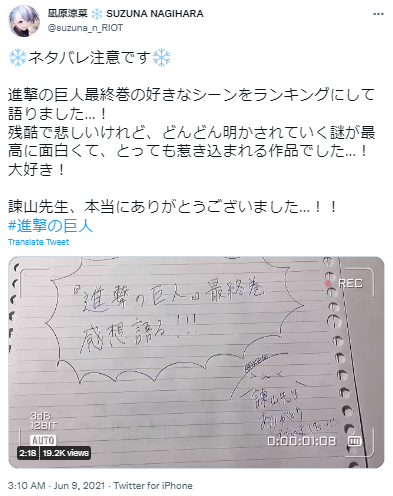 凪原涼菜 ❄ SUZUNA NAGIHARA
@suzuna_n_RIOT
❄ネタバレ注意です❄
進撃の巨人最終巻の好きなシーンをランキングにして
語りました…！
残酷で悲しいけれど、どんどん明かされていく謎が最
高に面白くて、とっても惹き込まれる作品でした…！
大好き！
諫山先生、本当にありがとうございました…！！
#進撃の巨人
Translate Tweet
REC
『進撃の巨人』最終巻
感想語る!!!
諫山先生
ありがとう
3dB
12BIT
AUTO
0:00:01:08
2:18 19.2K views
3:10 AM · Jun 9, 2021 · Twitter for iPhone